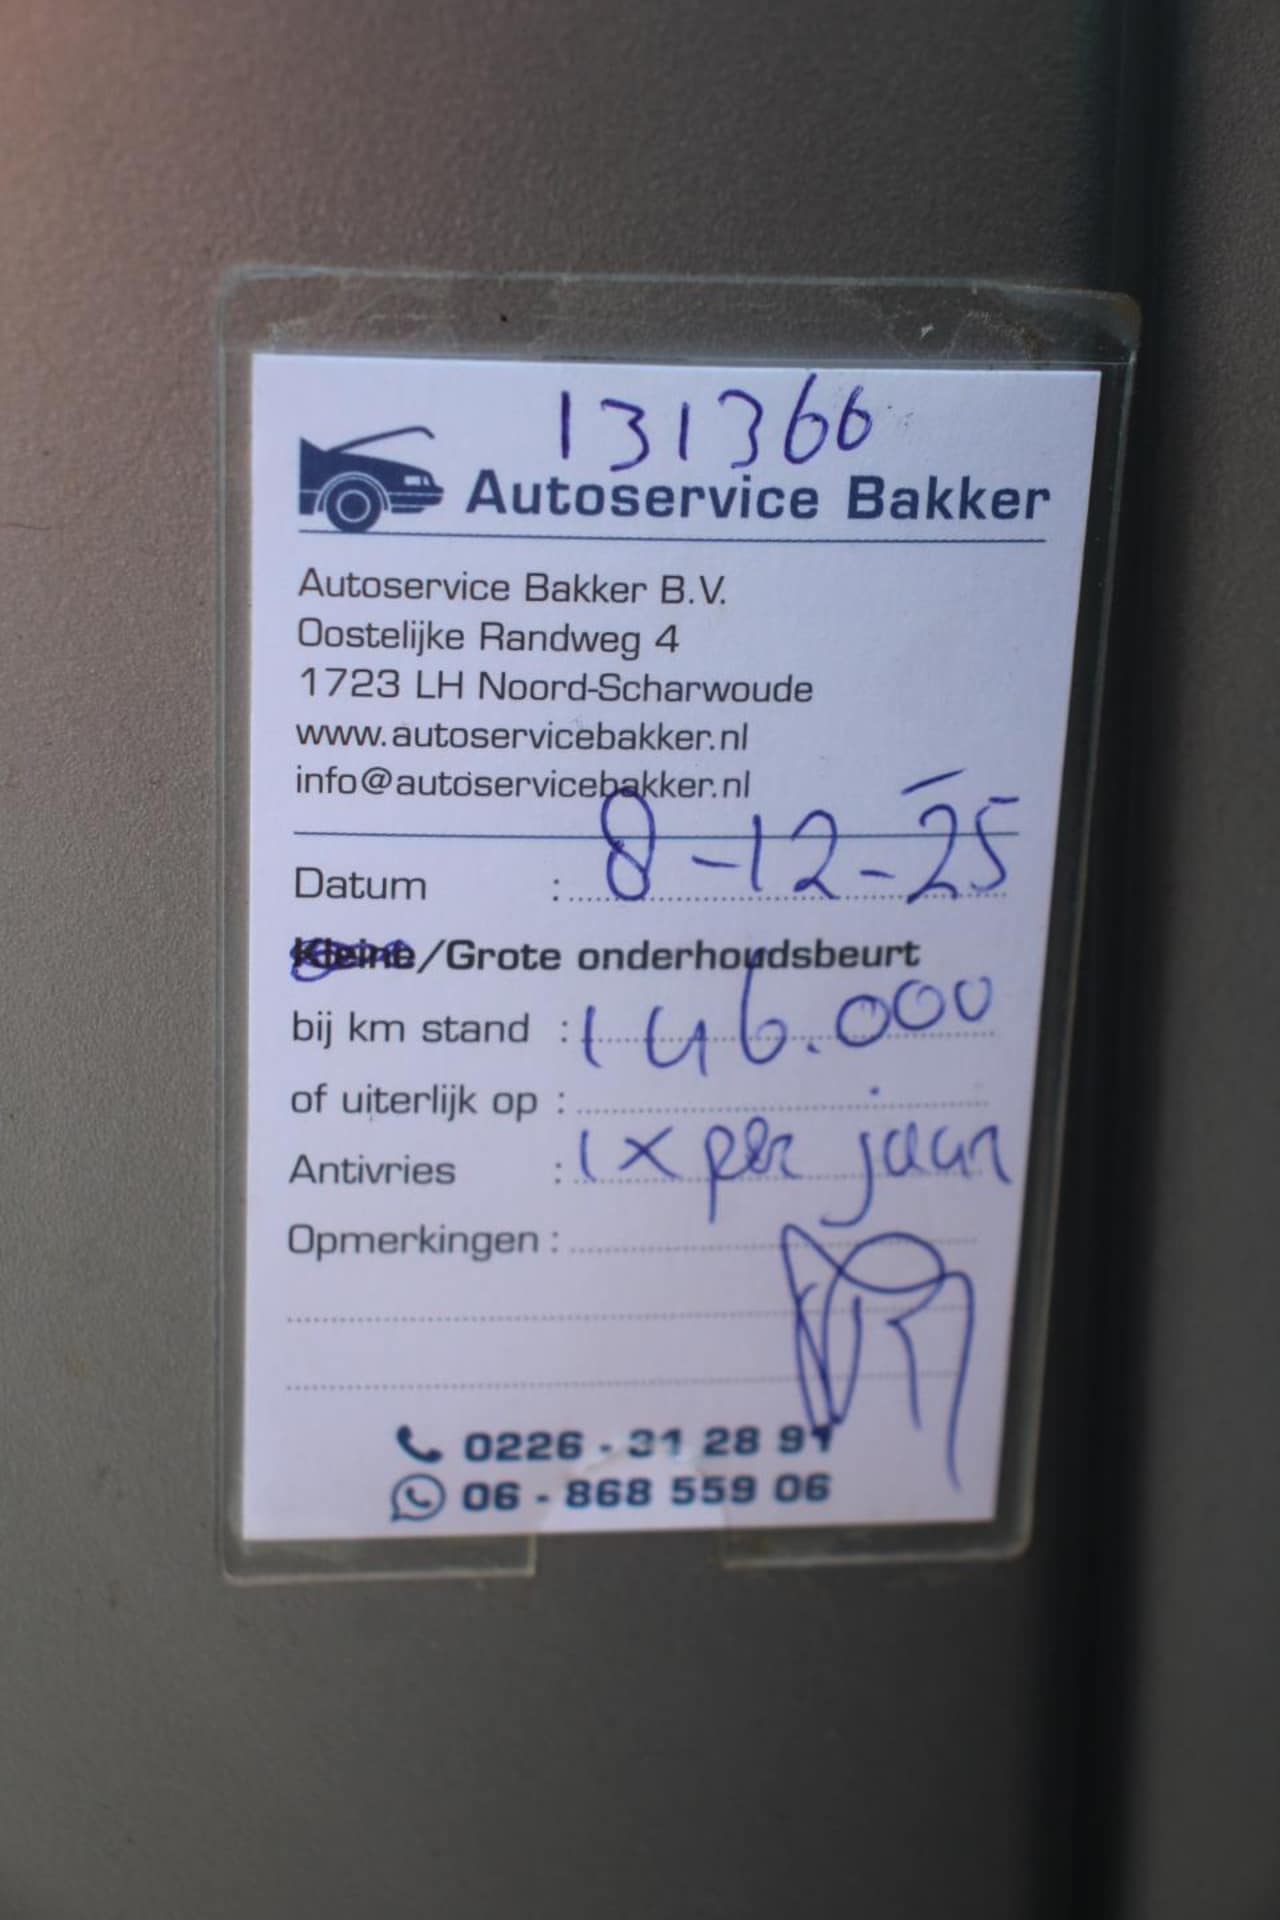 131366
Autoservice Bakker
Autoservice Bakker B.V.
Oostelijke Randweg 4
1723 LH Noord-Scharwoude
www.autoservicebakker.nl
info@autoservicebakker.nl
Datum : 8-12-25
Kleine/Grote onderhoudsbeurt
bij km stand : 146.000
of uiterlijk op :
Antivries : 1x per jaar
Opmerkingen :
0226 - 31 28 91
06 - 868 559 06